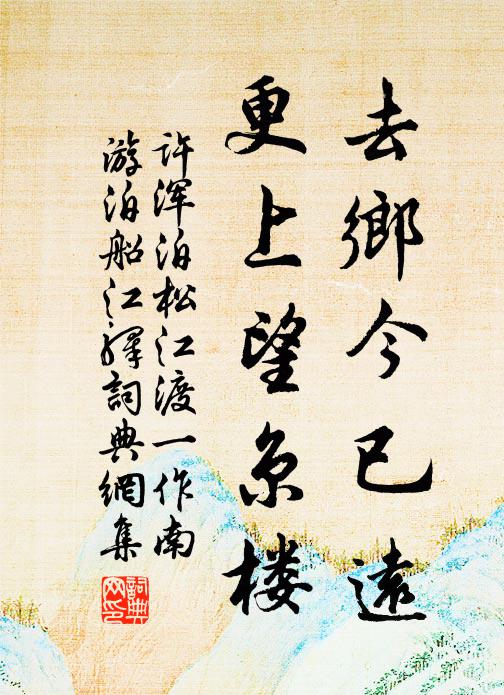 去鄉今已遠
更上望京楼
许浑泊松江渡一作南
游泊船江驛詞典網集
詞典
网印